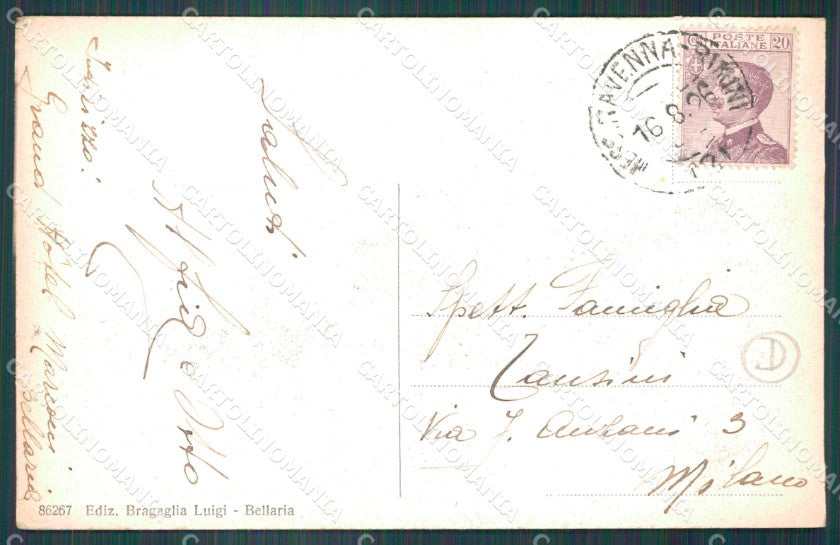 Indirizzo:
Grand Hôtel Marconi
Bellaria
Saluti
e Otto
86267 Ediz. Bragaglia Luigi - Bellaria
POSTE
ITALIANE 20
RAVENNA-RIMINI
16.8.26
Spett. Famiglia
Tansini
Via J. Andani 3
Milano
D
CARTOLINOMANIA